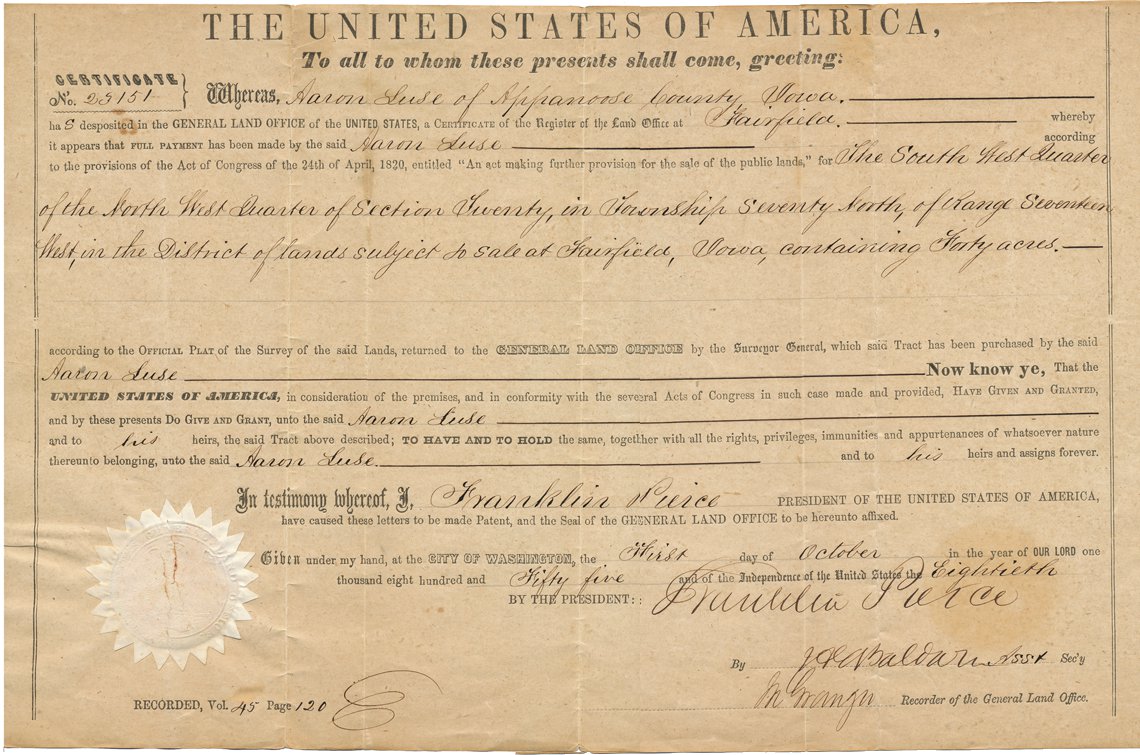 THE UNITED STATES OF AMERICA,
To all to whom these presents shall come, greeting:
CERTIFICATE
No. 23151
Whereas, Aaron Luse of Appanoose County, Iowa.
ha s desposited in the GENERAL LAND OFFICE of the UNITED STATES, a CERTIFICATE of the Register of the Land Office at Fairfield. whereby
it appears that FULL PAYMENT has been made by the said Aaron Luse according
to the provisions of the Act of Congress of the 24th of April, 1820, entitled "An act making further provision for the sale of the public lands," for The South West Quarter
of the North West Quarter of Section Twenty, in Township Seventy North, of Range Seventeen
West, in the District of lands subject to sale at Fairfield, Iowa, containing Forty acres.
according to the OFFICIAL PLAT of the Survey of the said Lands, returned to the GENERAL LAND OFFICE by the Surveyor General, which said Tract has been purchased by the said
Aaron Luse Now know ye, That the
UNITED STATES OF AMERICA, in consideration of the premises, and in conformity with the several Acts of Congress in such case made and provided, HAVE GIVEN AND GRANTED,
and by these presents DO GIVE AND GRANT, unto the said Aaron Luse
and to his heirs, the said Tract above described; TO HAVE AND TO HOLD the same, together with all the rights, privileges, immunities and appurtenances of whatsoever nature
thereunto belonging, unto the said Aaron Luse and to his heirs and assigns forever.
In testimony whereof, I, Franklin Pierce PRESIDENT OF THE UNITED STATES OF AMERICA,
have caused these letters to be made Patent, and the Seal of the GENERAL LAND OFFICE to be hereunto affixed.
Given under my hand, at the CITY OF WASHINGTON, the First day of October in the year of OUR LORD one
thousand eight hundred and Fifty five and of the Independence of the United States the Eightieth
BY THE PRESIDENT: : Franklin Pierce
By Asst Sec'y
Recorder of the General Land Office.
RECORDED, Vol. 45 Page 120